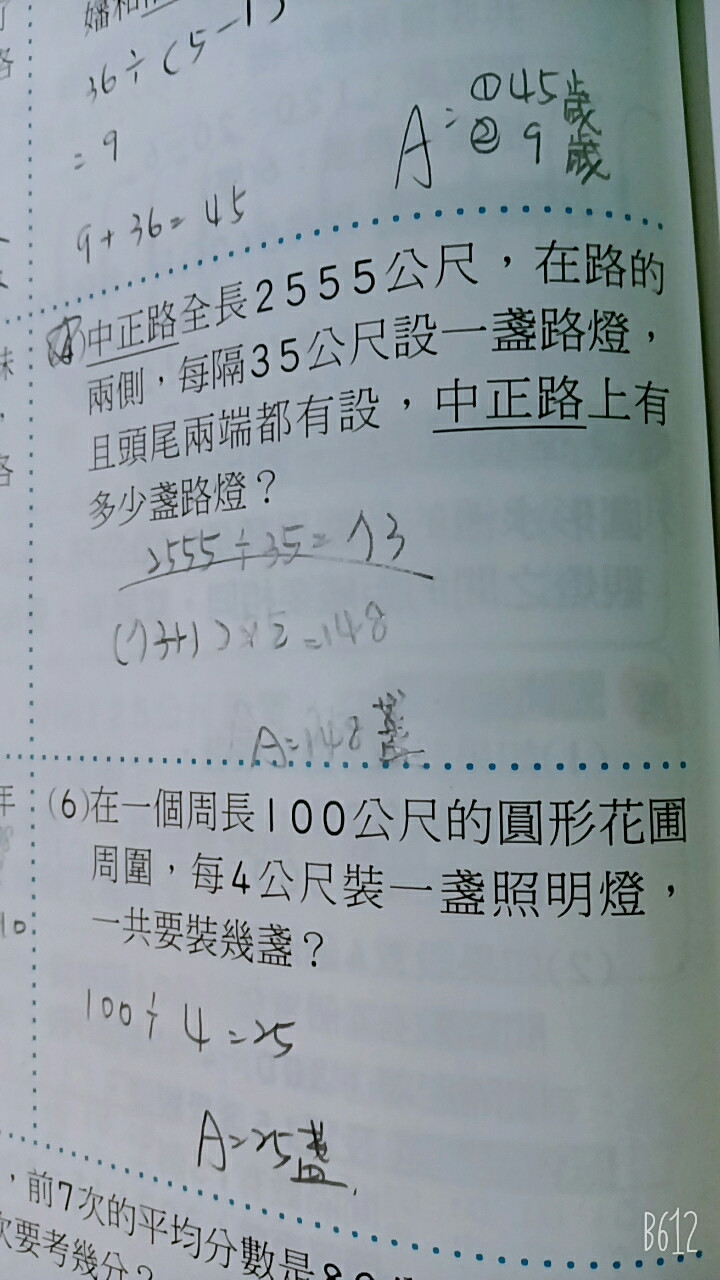 嬸和
36÷(5-1)
=9
9+36=45
A=①45歲
②9歲
中正路全長2555公尺，在路的
兩側，每隔35公尺設一盞路燈，
且頭尾兩端都有設，中正路上有
多少盞路燈？
2555÷35=73
(73+1)×2=148
A=148盞
(6)在一個周長100公尺的圓形花圃
周圍，每4公尺裝一盞照明燈，
一共要裝幾盞？
100÷4=25
A=25盞
，前7次的平均分數是8
次要考幾分？
B612